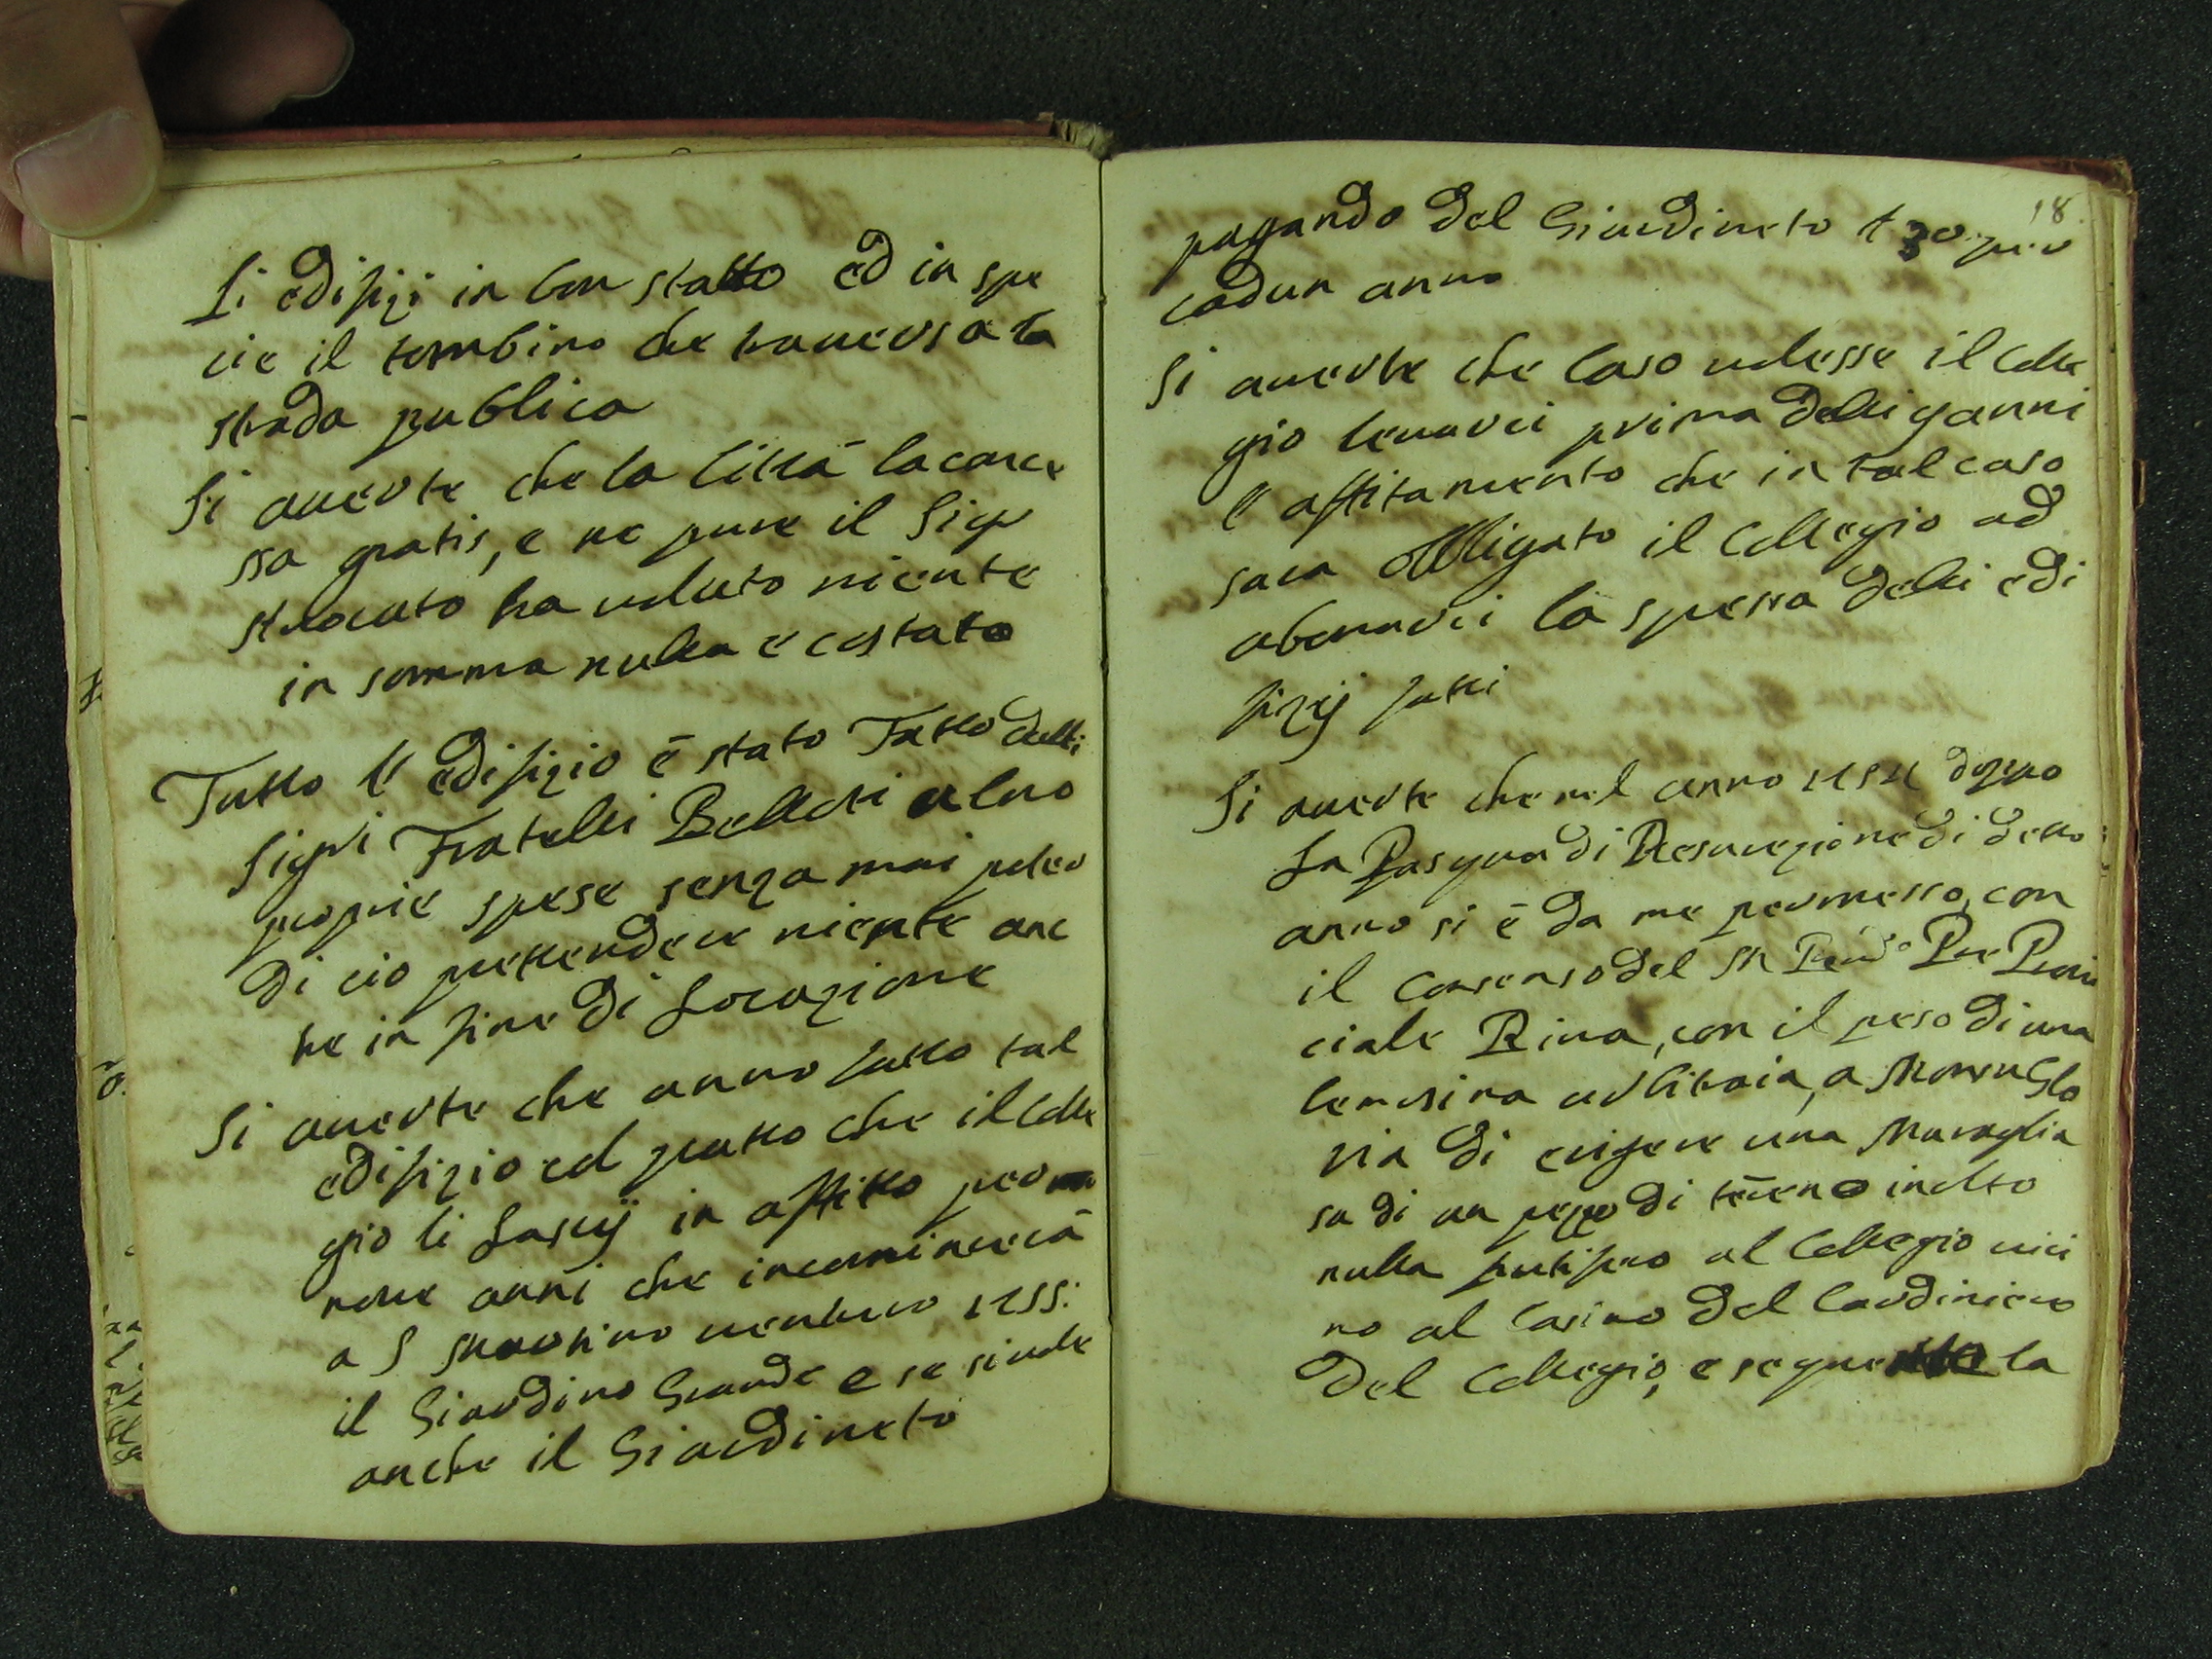 Li edifizi in bon statto ed in spe
cie il tombino che traversa la
strada publica
Si averte che la Città la conce
ssa gratis, e ne pure il Sigr
Avocato ha voluto niente
in somma nulla e costato
Tutto l' edifizio è stato Fatto dalli
Sigri Fratelli Belloti a loro
proprie spese senza mai poter
di cio prettendere niente anc
he in fine di Locazione
Si averte che anno fatto tal
edifizio col patto che il Colle
gio li Lascij in affitto per
nove anni che incomincierà
a S Martino venturo 1755.
il Giardino Grande e se si vole
anche il Giardineto
18
pagando del Giardineto 30 per
cadun anno
Si averte che Caso volesse il Colle
gio levarci prima delli 9 anni
l' affitamento che in tal caso
sara obbligato il Collegio ad
abonarci la spessa delli edi
fizij fatti
Si averte che nel anno 1754 doppo
La Pasqua di Resurezione di detto
anno si è da me permesso, con
il Consenso del M Revdo Pre Provin
ciale Riva, con il peso di una
lemosina ad libitum, a
di erigere una Muraglia
su di un pezzo di tereno incolto
nulla frutifero al Collegio vici
no al Casino del Giardiniero
del Collegio, e segue la